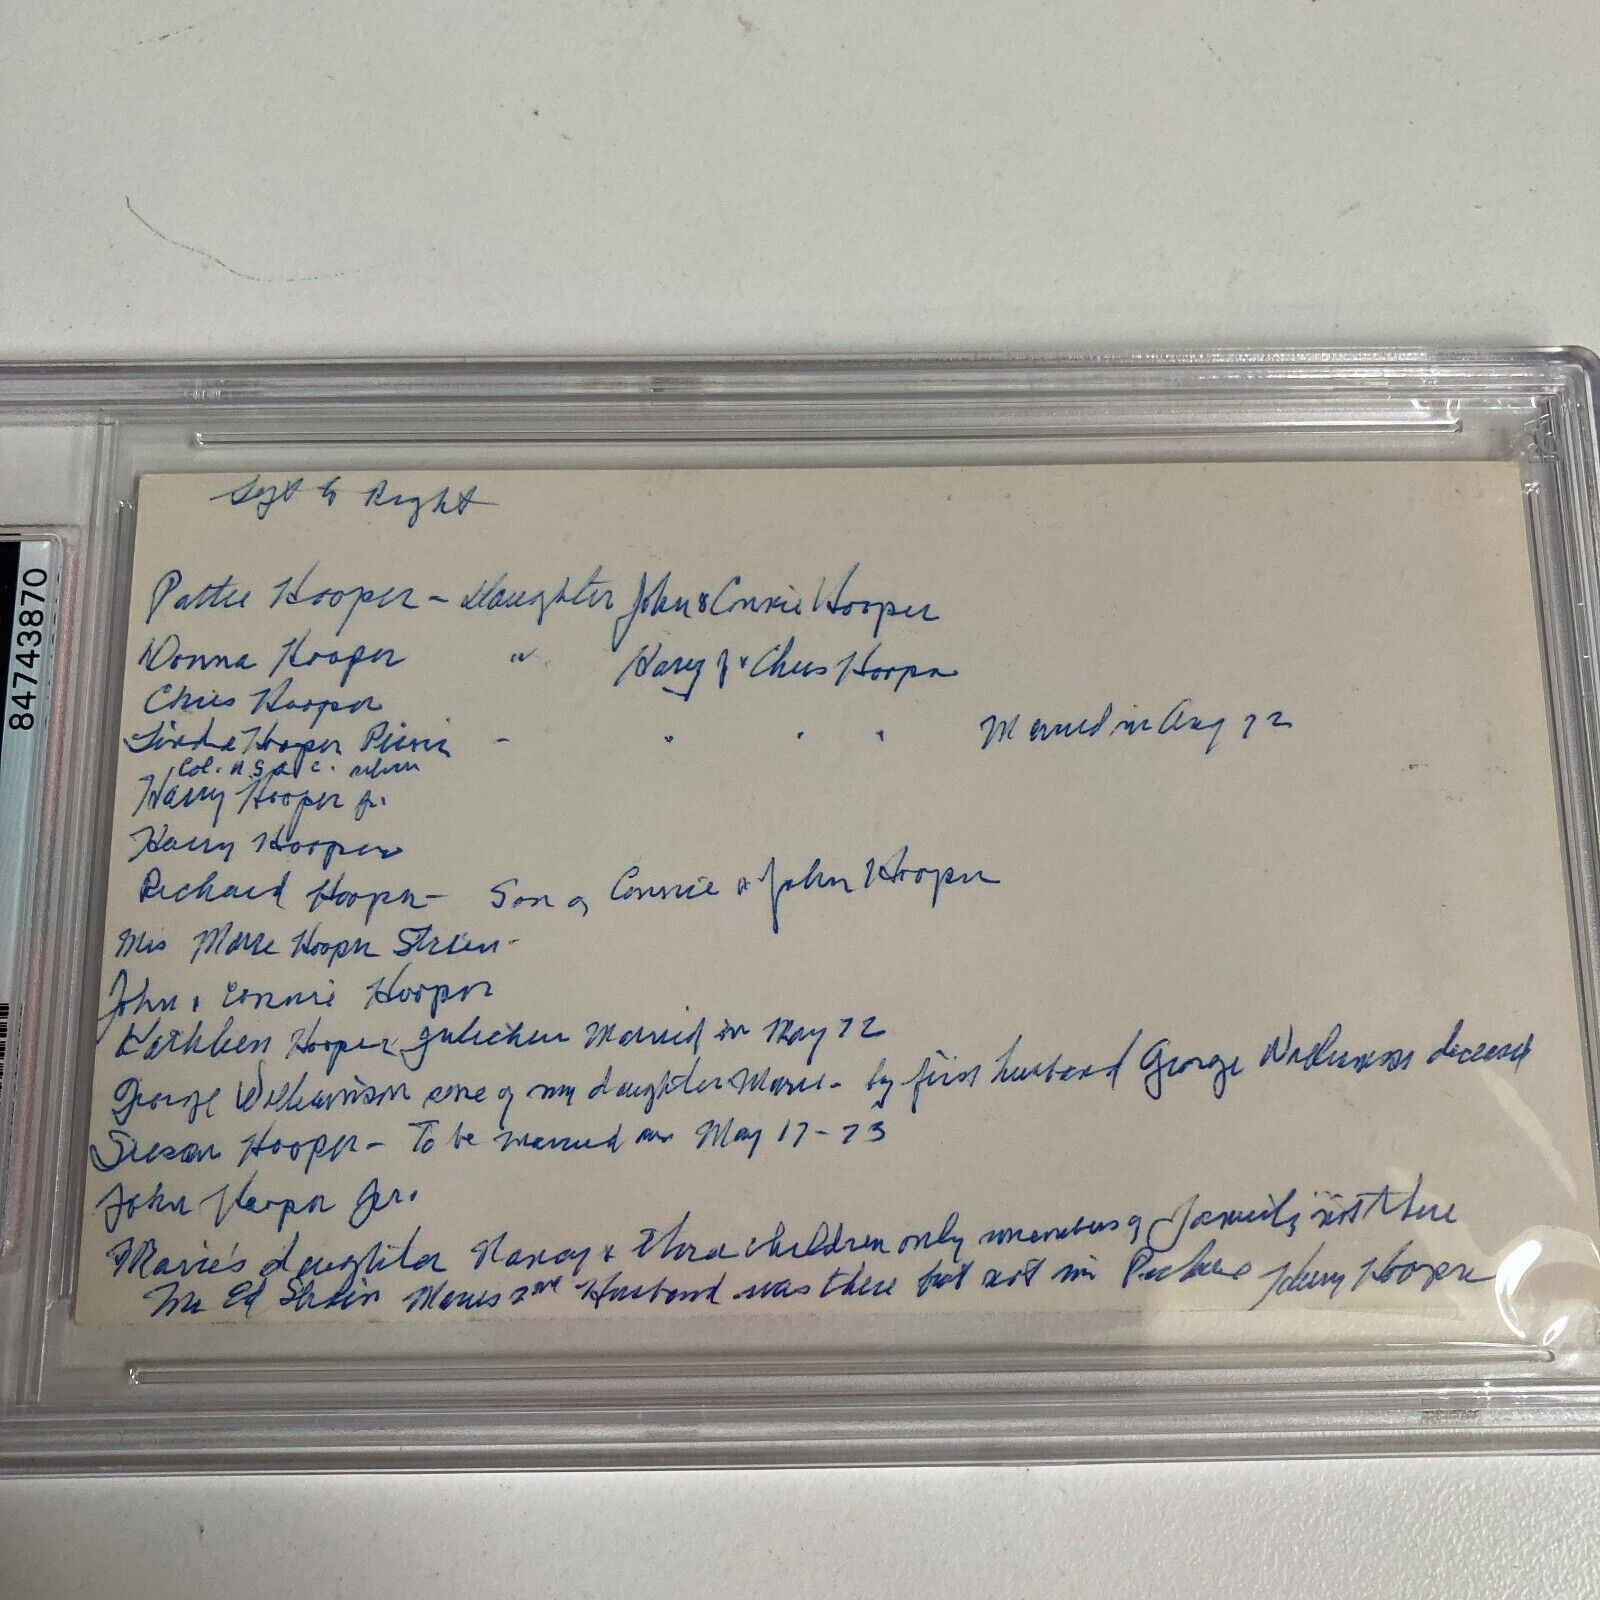 Left to Right
Pattee Hooper - Daughter John & Connie Hooper
Donna Hooper " Harry J & Chris Hooper
Chris Hooper
Linda Hooper - " " " Married in Aug 72
Col. U S A F.
Harry Hooper Jr.
Harry Hooper
Richard Hooper - Son of Connie & John Hooper
Mrs Marie Hooper Strain -
John & Connie Hooper
Kathleen Hooper Married in May 72
George Williamson son of my daughter Marie - by first husband George Williamson deceased
Susan Hooper - To be married on May 17-73
John Hooper Jr.
Marie's daughter Nancy & three children only members of family not there
Mr Ed Strain Maries 2nd Husband was there but not in Picture Harry Hooper
84743870